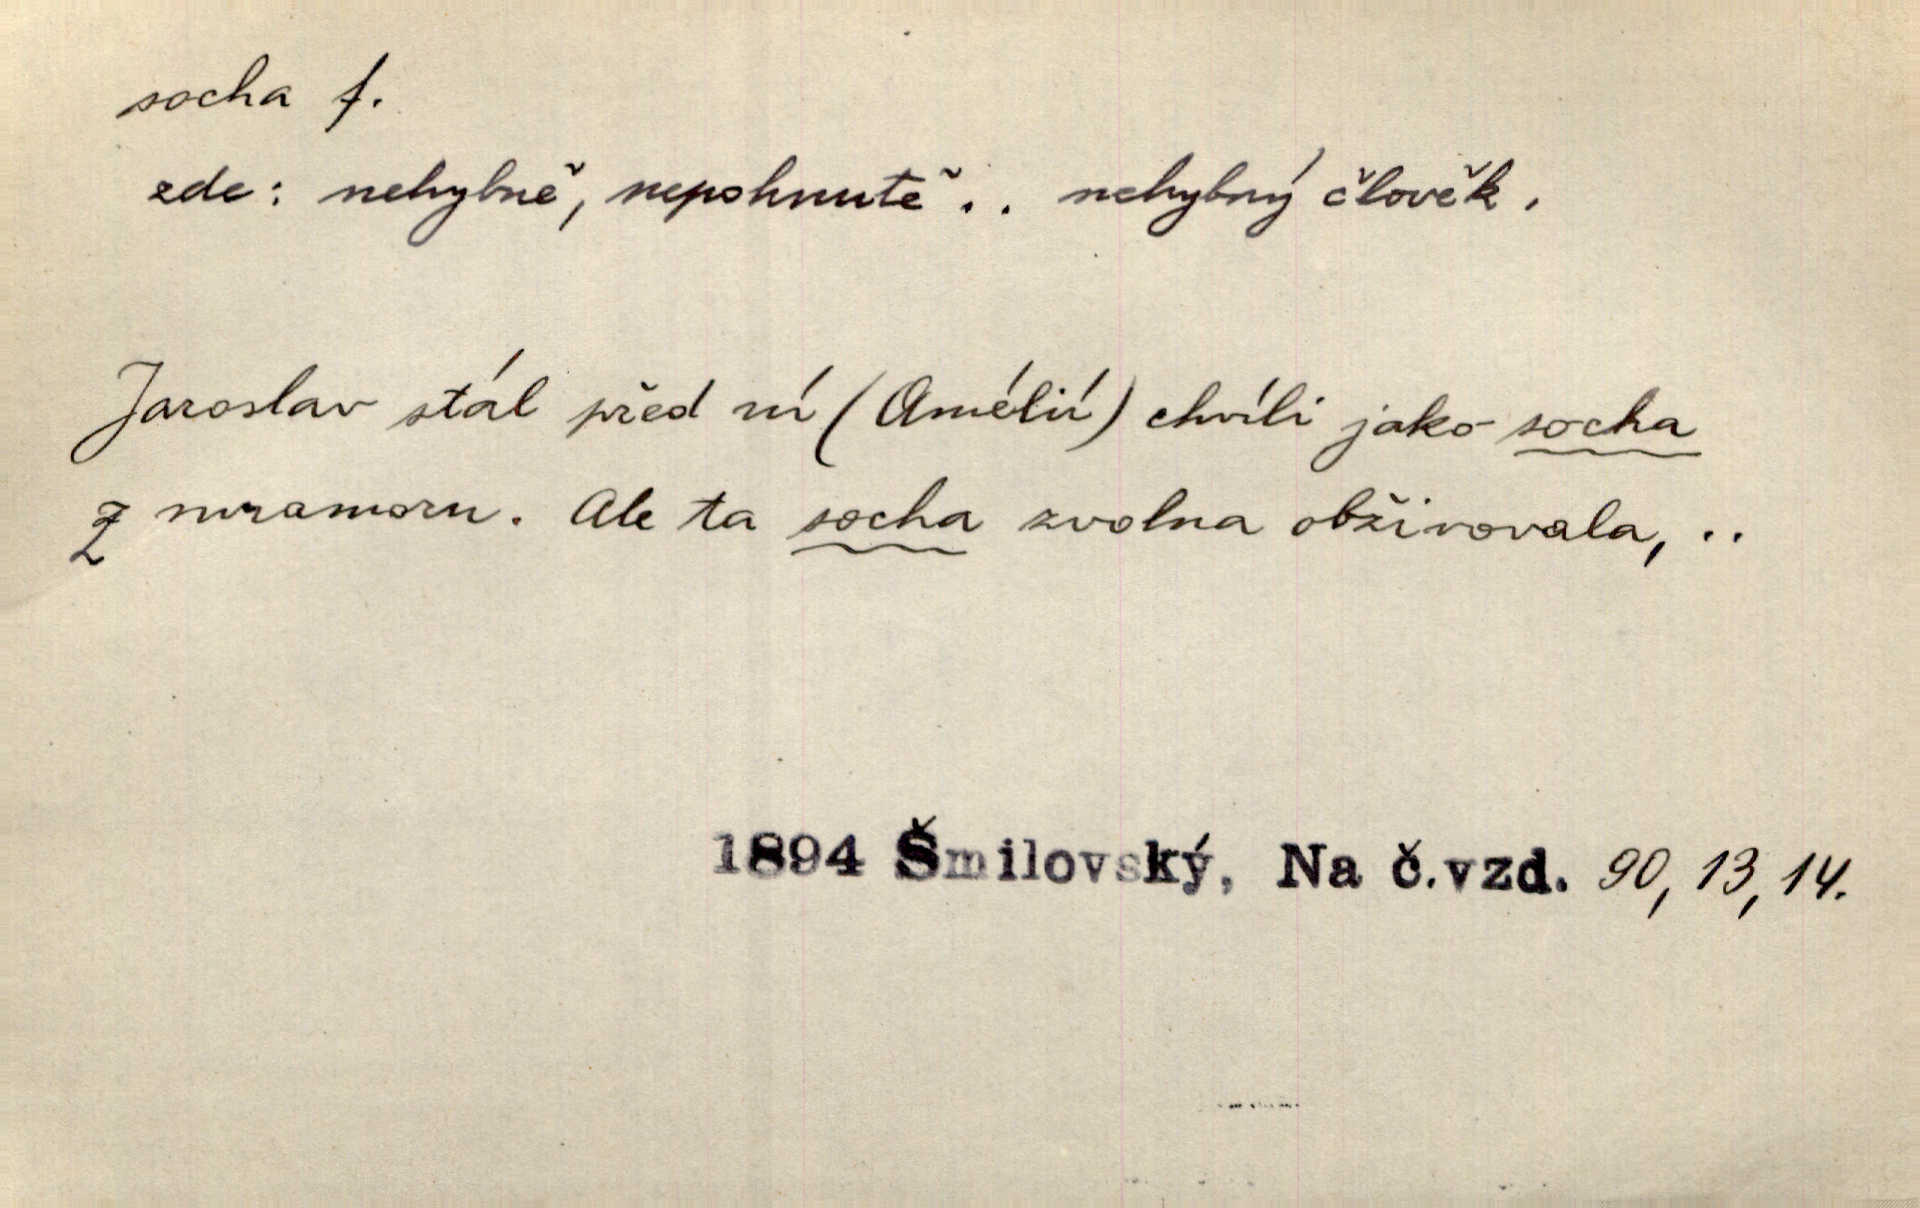 socha f.
zde: nehybně, nepohnutě . . nehybný člověk.
Jaroslav stál před ní (Amélií) chvíli jako socha
z mramoru. Ale ta socha zvolna obživovala, ..
1894 Šmilovský, Na č.vzd. 90, 13, 14.